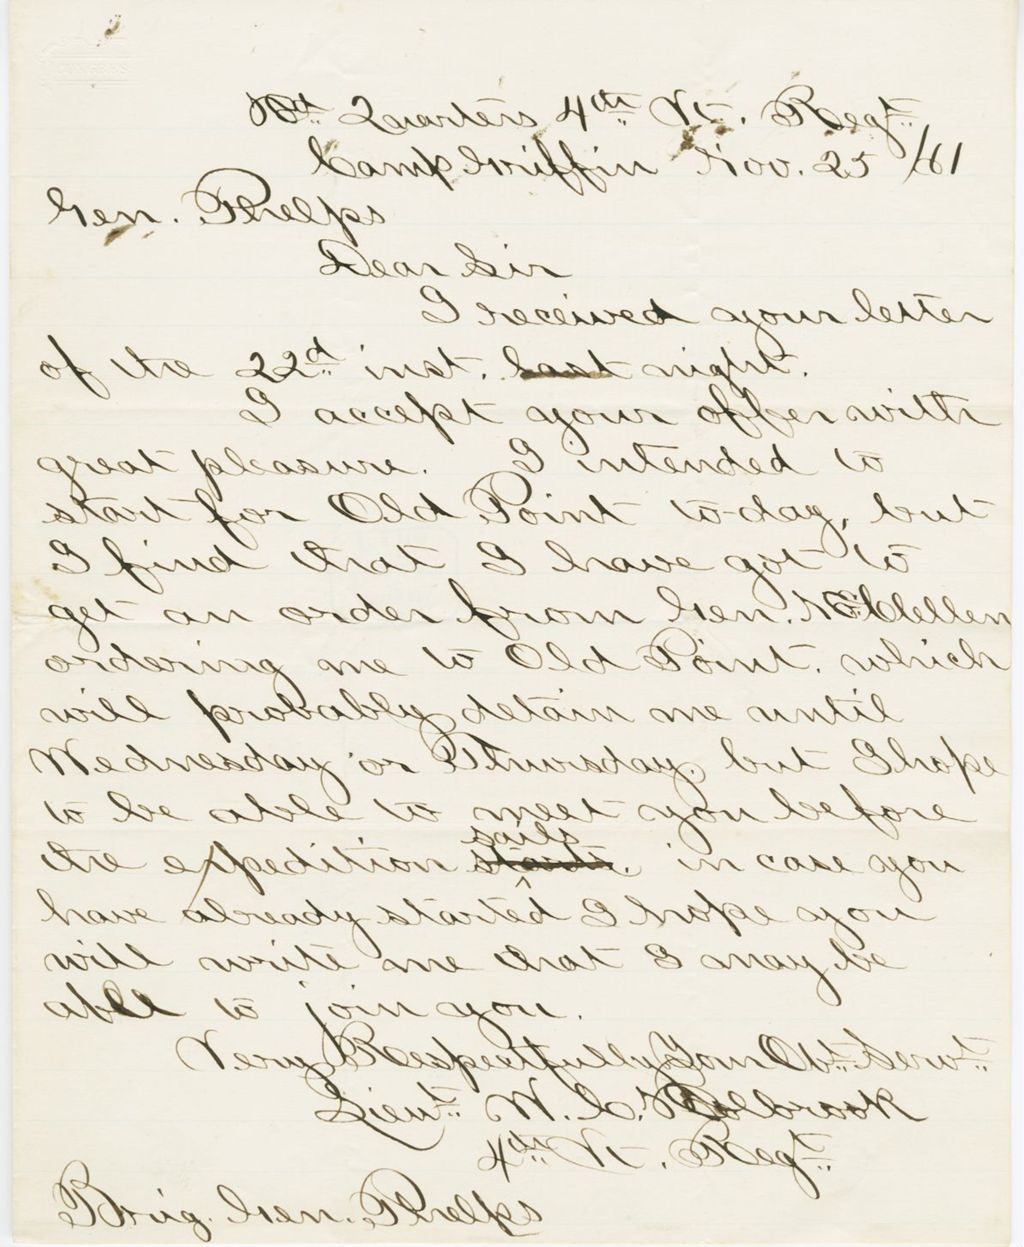 Hd Quarters 4th Vt. Regt
Camp Griffin Nov. 25 /61
Gen. Phelps
Dear Sir
I received your letter
of the 22d inst. last night.
I accept your offer with
great pleasure. I intended to
start for Old Point to-day, but
I find that I have got to
get an order from Gen. McClellen
ordering me to Old Point. which
will probably detain me until
Wednesday or Thursday, but I hope
to be able to meet you before
sails
the expedition starts. in case you
have already started I hope you
will write me that I may be
able to join you.
Very Respectfully Your Obt. Servt.
Lieut. W. C. Holbrook
4th Vt. Regt.
Brig. Gen. Phelps